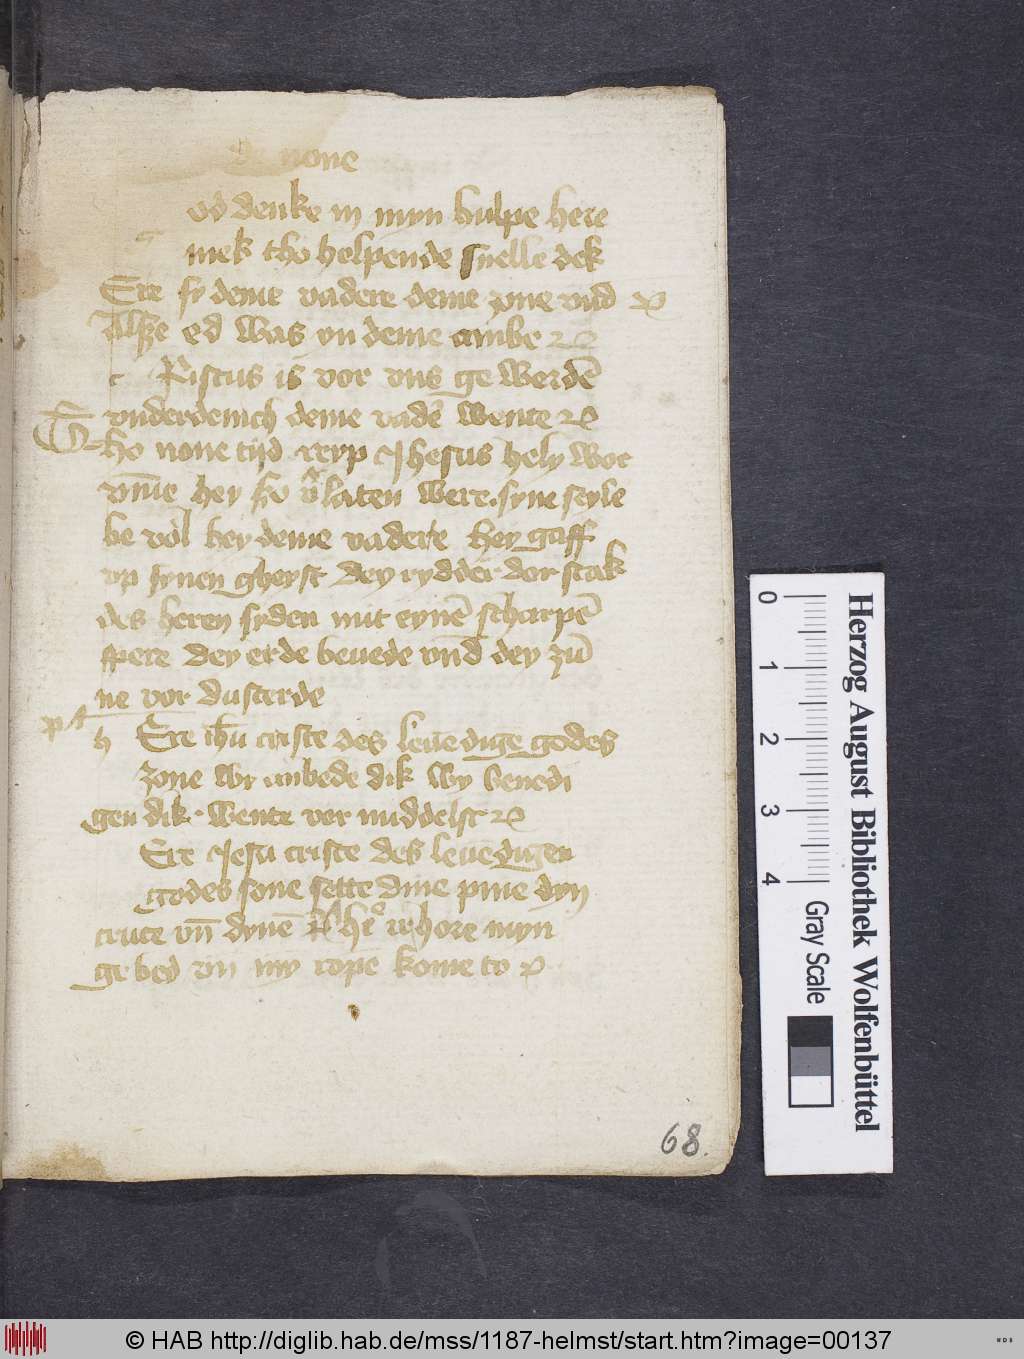 none
od denke in myn hulpe here
mek tho helpende snelle dek
Ere sy deme vadere deme zone vnd
Alße ed was yn deme anbe
Ristus is vor vns ge werdē
vnderdenich deme vadē wente
ho none tijd reyp Jhesus hely wor
vm̄e hey ßo v̾laten were. syne seyle
be vol hey deme vadere hey gaff
vp synen gheyst dey rydder dor stak
des heren syden mit eynē scharpē
spere dey erde beuede vn̄d dey zū
ne vor dusterde
h Ere ihū criste des leuēdige godes
zone wy anbede dik wy benedi
gen dik. wente vor middelst
Ere Jesu criste des leuēdigen
godes sone sette dine pine dyn
cruce vn̄ dynē her̾ irhore myn
ge bed vn̄ my ropē kome to
68.
0 1 2 3 4
Gray Scale
Herzog August Bibliothek Wolfenbüttel
© HAB http://diglib.hab.de/mss/1187-helmst/start.htm?image=00137